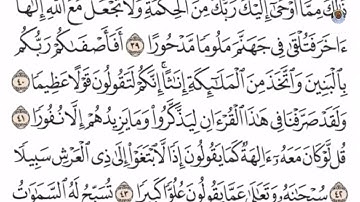 ذَٰلِكَ مِمَّآ أَوْحَىٰٓ إِلَيْكَ رَبُّكَ مِنَ ٱلْحِكْمَةِ وَلَا تَجْعَلْ مَعَ ٱللَّهِ إِلَٰهًا
ءَاخَرَ فَتُلْقَىٰ فِى جَهَنَّمَ مَلُومًا مَّدْحُورًا ٣٩ أَفَأَصْفَىٰكُمْ رَبُّكُم
بِٱلْبَنِينَ وَٱتَّخَذَ مِنَ ٱلْمَلَٰٓئِكَةِ إِنَٰثًا ۚ إِنَّكُمْ لَتَقُولُونَ قَوْلًا عَظِيمًا ٤٠
وَلَقَدْ صَرَّفْنَا فِى هَٰذَا ٱلْقُرْءَانِ لِيَذَّكَّرُوا۟ وَمَا يَزِيدُهُمْ إِلَّا نُفُورًا ٤١
قُل لَّوْ كَانَ مَعَهُۥٓ ءَالِهَةٌ كَمَا يَقُولُونَ إِذًا لَّٱبْتَغَوْا۟ إِلَىٰ ذِى ٱلْعَرْشِ سَبِيلًا
٤٢ سُبْحَٰنَهُۥ وَتَعَٰلَىٰ عَمَّا يَقُولُونَ عُلُوًّا كَبِيرًا ٤٣ تُسَبِّحُ لَهُ ٱلسَّمَٰوَٰتُ